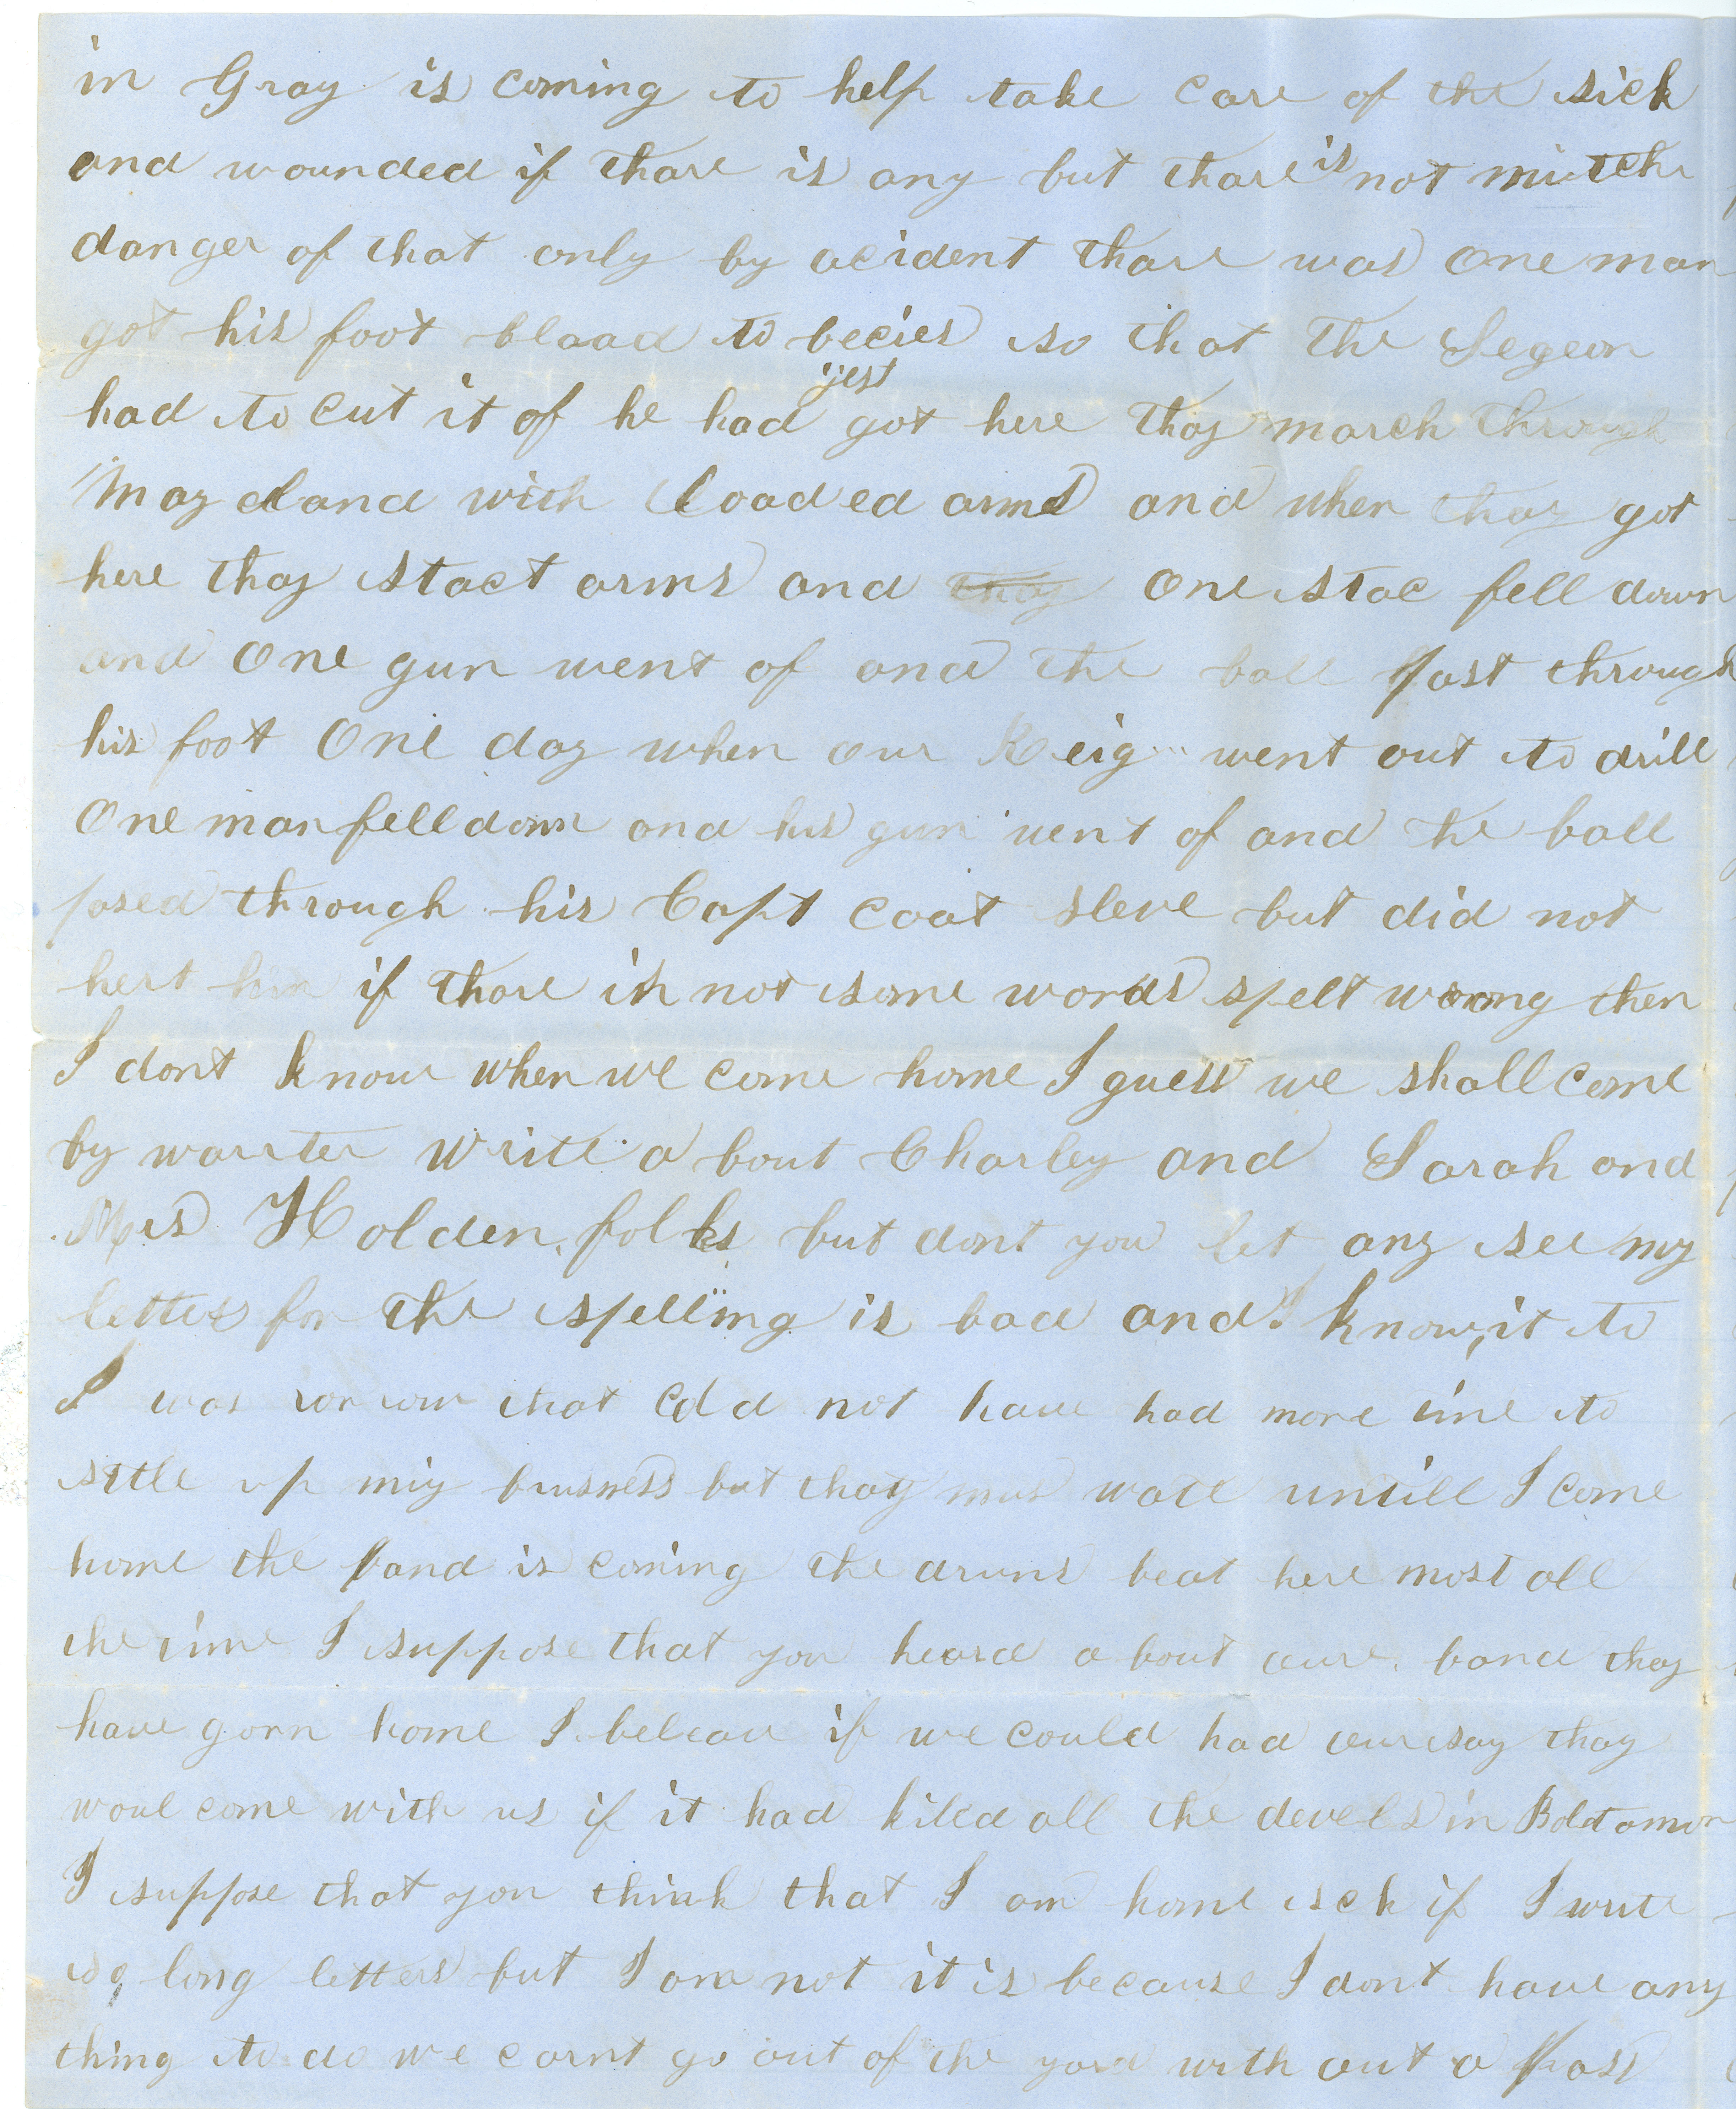 in Gray is coming to help take care of the sick
and wounded if thare is any but thare is not mutch
danger of that only by acident thare was one man
got his foot blaad to becies so that the Segeon
had to cut it of he had jest got here thay march through
Mayeland with loaded arms and when thay got
here thay stact arms and thay one stac fell down
and one gun went of and the ball past through
his foot One day when our Reig went out to drill
One man fell down and his gun went of and the ball
pased through his Capt coat sleve but did not
hert him if thare is not some words spelt wrong then
I dont know when we come home I guess we shall come
by warter write a bout Charley and Sarah and
Mis Holden folks but dont you let any see my
letter for the spelling is bad and I know it to
I was that cold not have had more time to
settle up miy busness but thay mus wate untill I come
home the band is coming the drums beat here most all
the time I suppose that you heard a bout oure band thay
have gorn home I beleave if we could had our say thay
woul come with us if it had kiled all the devels in Boltamor
I suppose that you think that I am home sck if I write
so long letters but I am not it is because I dont have any
thing to do we carnt go out of the yard with out a pass